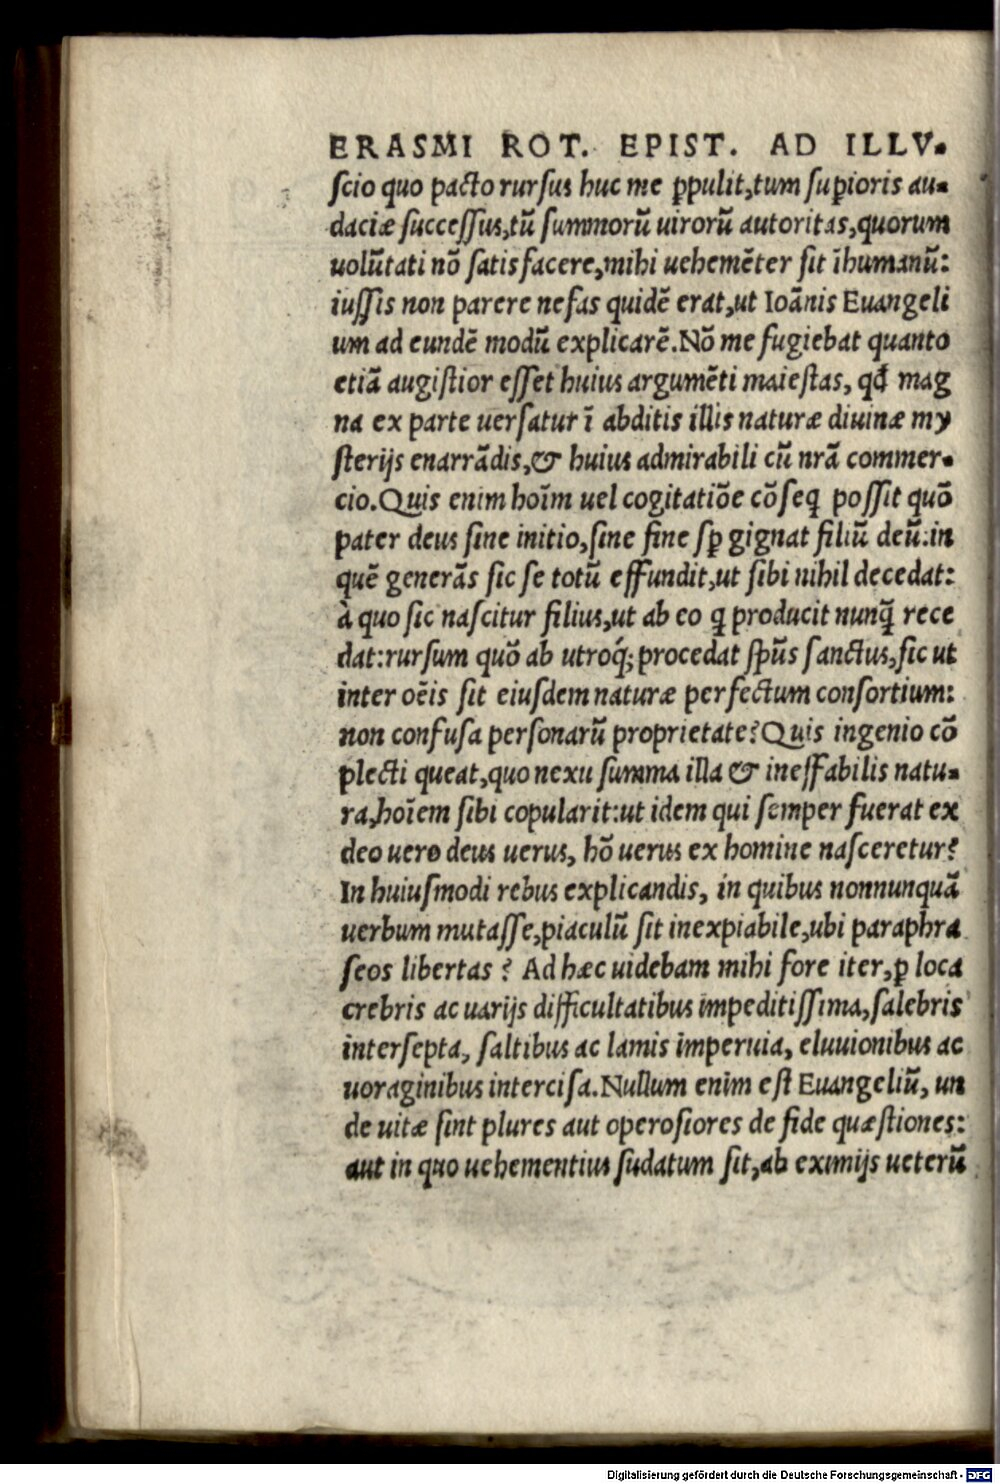 ERASMI ROT. EPIST. AD ILLV-
ſcio quo pacto rurſus huc me ꝓpulit,tum ſuꝑioris au-
daciæ ſucceſſus,tū ſummorū uirorū autoritas,quorum
uolūtati nō ſatisfacere,mihi uehemēter ſit īhumanū:
iuſſis non parere nefas quidē erat,ut Ioānis Euangeli
um ad eundē modū explicarē.Nō me fugiebat quanto
etiā auguſtior eſſet huius argumēti maieſtas, qđ mag
na ex parte uerſatur ī abditis illis naturæ diuinæ my
ſterijs enarrādis,& huius admirabili cū nrā commer-
cio.Quis enim hoīm uel cogitatiōe cōſeꝗ poſſit quō
pater deus ſine initio,ſine fine ſꝑ gignat filiū deū:in
quē generās ſic ſe totū effundit,ut ſibi nihil decedat:
à quo ſic naſcitur filius,ut ab eo ꝗ producit nunꝗ̄ rece
dat:rurſum quō ab utroq́;procedat ſp̄us ſanctus,ſic ut
inter oēis ſit eiuſdem naturæ perfectum conſortium:
non confuſa perſonarū proprietate?Quis ingenio cō
plecti queat,quo nexu ſumma illa & ineffabilis natu-
ra,hoīem ſibi copularit:ut idem qui ſemper fuerat ex
deo uero deus uerus, hō uerus ex homine naſceretur?
In huiuſmodi rebus explicandis, in quibus nonnunquā
uerbum mutaſſe,piaculū ſit inexpiabile,ubi paraphra
ſeos libertas ? Ad hæc uidebam mihi fore iter,ꝑ loca
crebris ac uarijs difficultatibus impeditiſſima,ſalebris
interſepta, ſaltibus ac lamis imperuia, eluuionibus ac
uoraginibus interciſa.Nullum enim eſt Euangeliū, un
de uitæ ſint plures aut operoſiores de fide quæſtiones:
aut in quo uehementius ſudatum ſit,ab eximijs ueterū
Digitalisierung gefördert durch die Deutsche Forschungsgemeinschaft - DFG